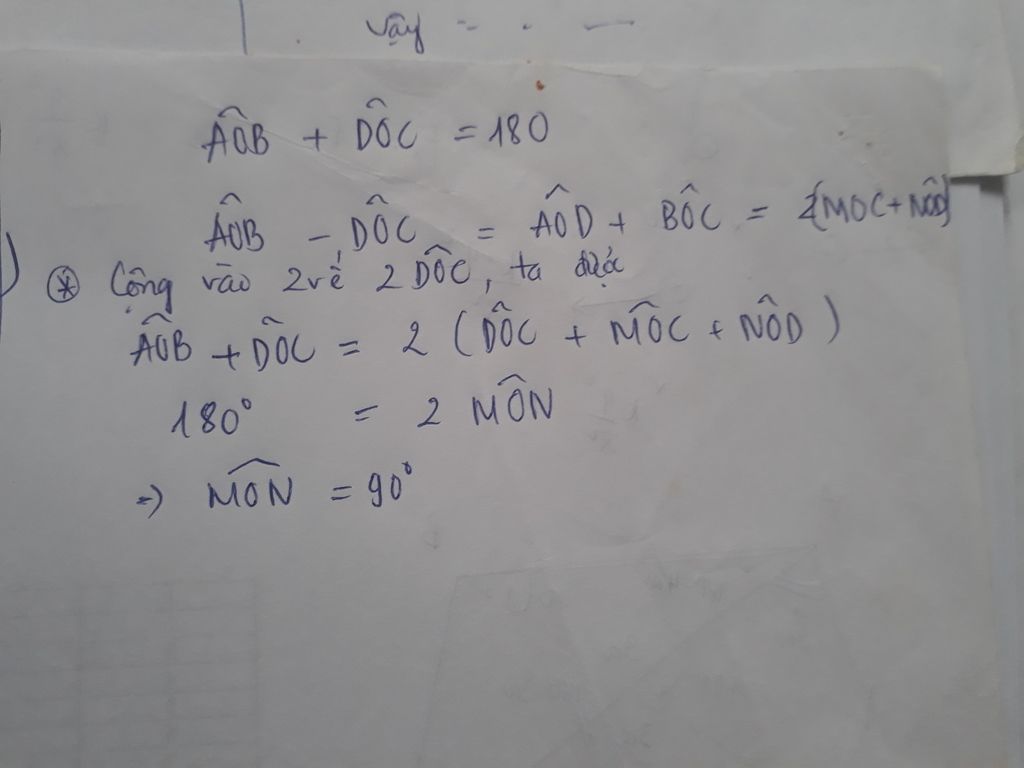 Vậy = . —
AÔB + DÔC = 180
AÔB - DÔC = AÔD + BÔC = 2(MOC + NÔD)
⊛ Cộng vào 2 vế 2 DÔC, ta được
AÔB + DÔC = 2 (DÔC + MÔC + NÔD)
180° = 2 MÔN
=> MÔN = 90°